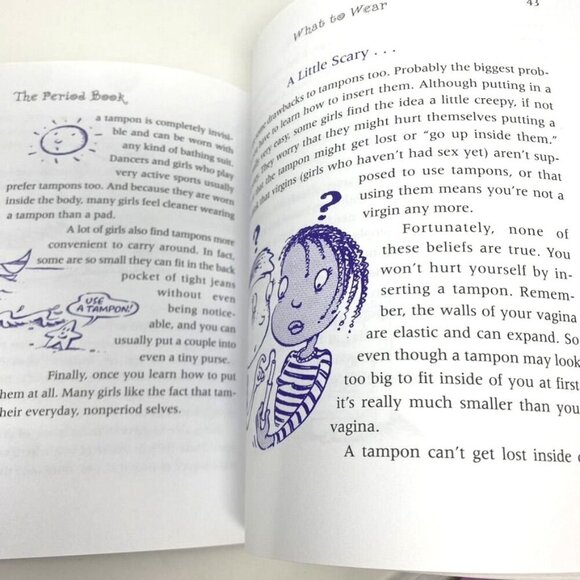 The Period Book
a tampon is completely invisi-
ble and can be worn with
any kind of bathing suit.
Dancers and girls who play
very active sports usually
prefer tampons too. And because they are worn
inside the body, many girls feel cleaner wearing
a tampon than a pad.
A lot of girls also find tampons more
convenient to carry around. In fact,
some are so small they can fit in the back
pocket of tight jeans
without even
being notice-
able, and you can
usually put a couple into
even a tiny purse.
USE
A TAMPON!
Finally, once you learn how to put
em at all. Many girls like the fact that tam-
heir everyday, nonperiod selves.
What to Wear
43
A Little Scary . . .
drawbacks to tampons too. Probably the biggest prob-
have to learn how to insert them. Although putting in a
very easy, some girls find the idea a little creepy, if not
They worry that they might hurt themselves putting a
that the tampon might get lost or “go up inside them.”
that virgins (girls who haven’t had sex yet) aren’t sup-
posed to use tampons, or that
using them means you’re not a
virgin any more.
?
?
Fortunately, none of
these beliefs are true. You
won’t hurt yourself by in-
serting a tampon. Remem-
ber, the walls of your vagina
are elastic and can expand. So
even though a tampon may look
too big to fit inside of you at first
it’s really much smaller than you
vagina.
A tampon can’t get lost inside